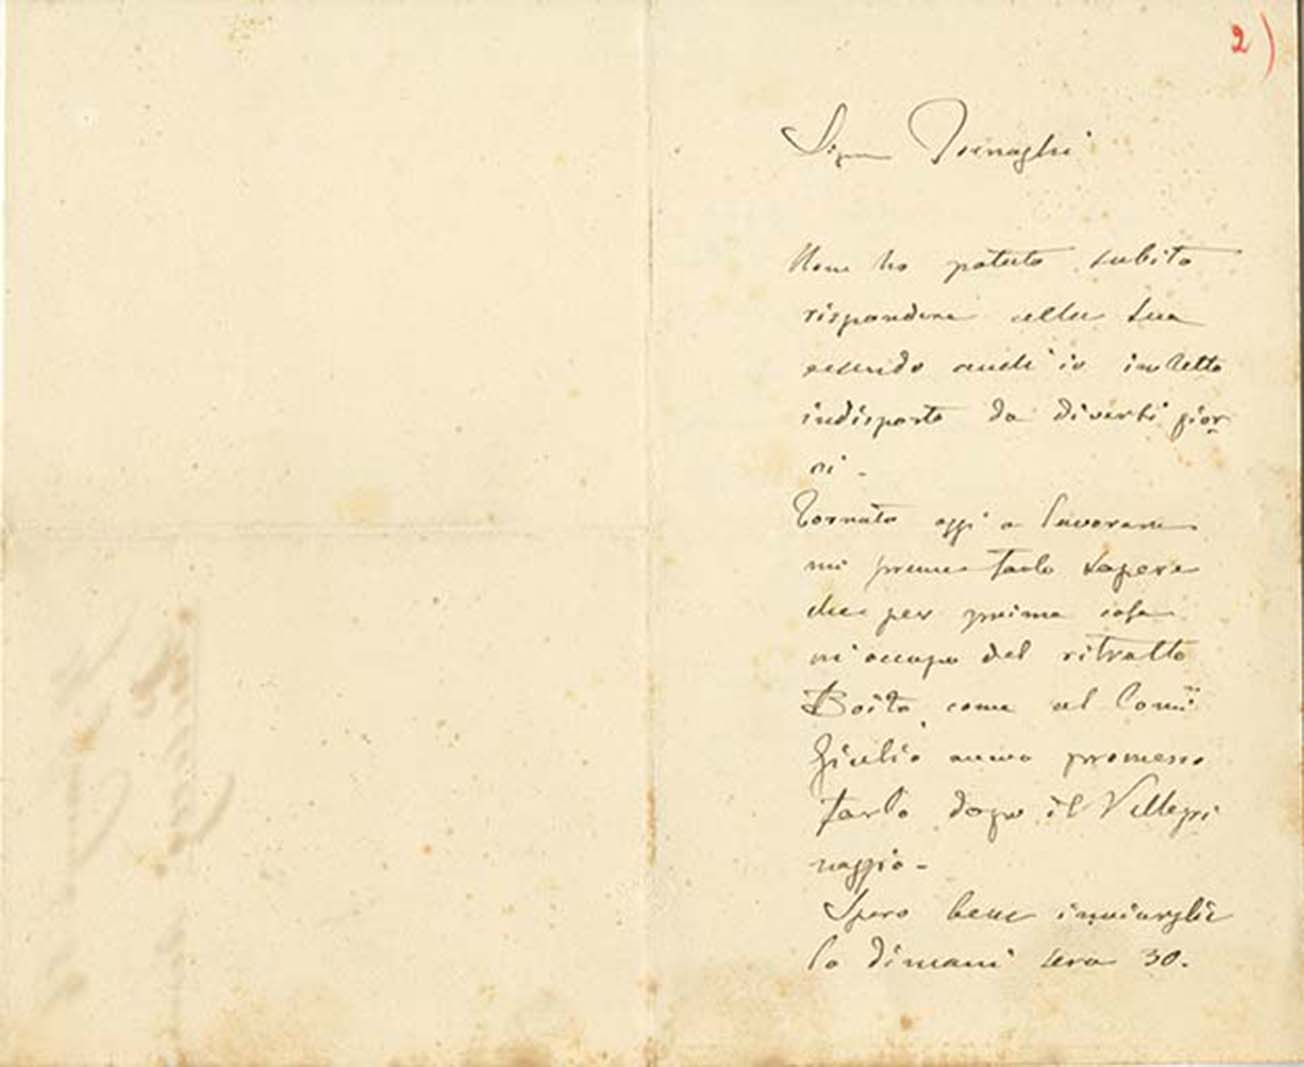 2)
Signor Tornaghi
Non ho potuto subito
rispondere alla sua
essendo anch'io in letto
indisposto da diversi gior
ni -
Tornato oggi a lavorare
mi preme farlo sapere
che per prima cosa
m'occupo del ritratto
Boito come al Com
Giulio avevo promesso
farlo dopo il Vellegri
naggio -
Spero bene inviarglie
lo dimani sera 30.